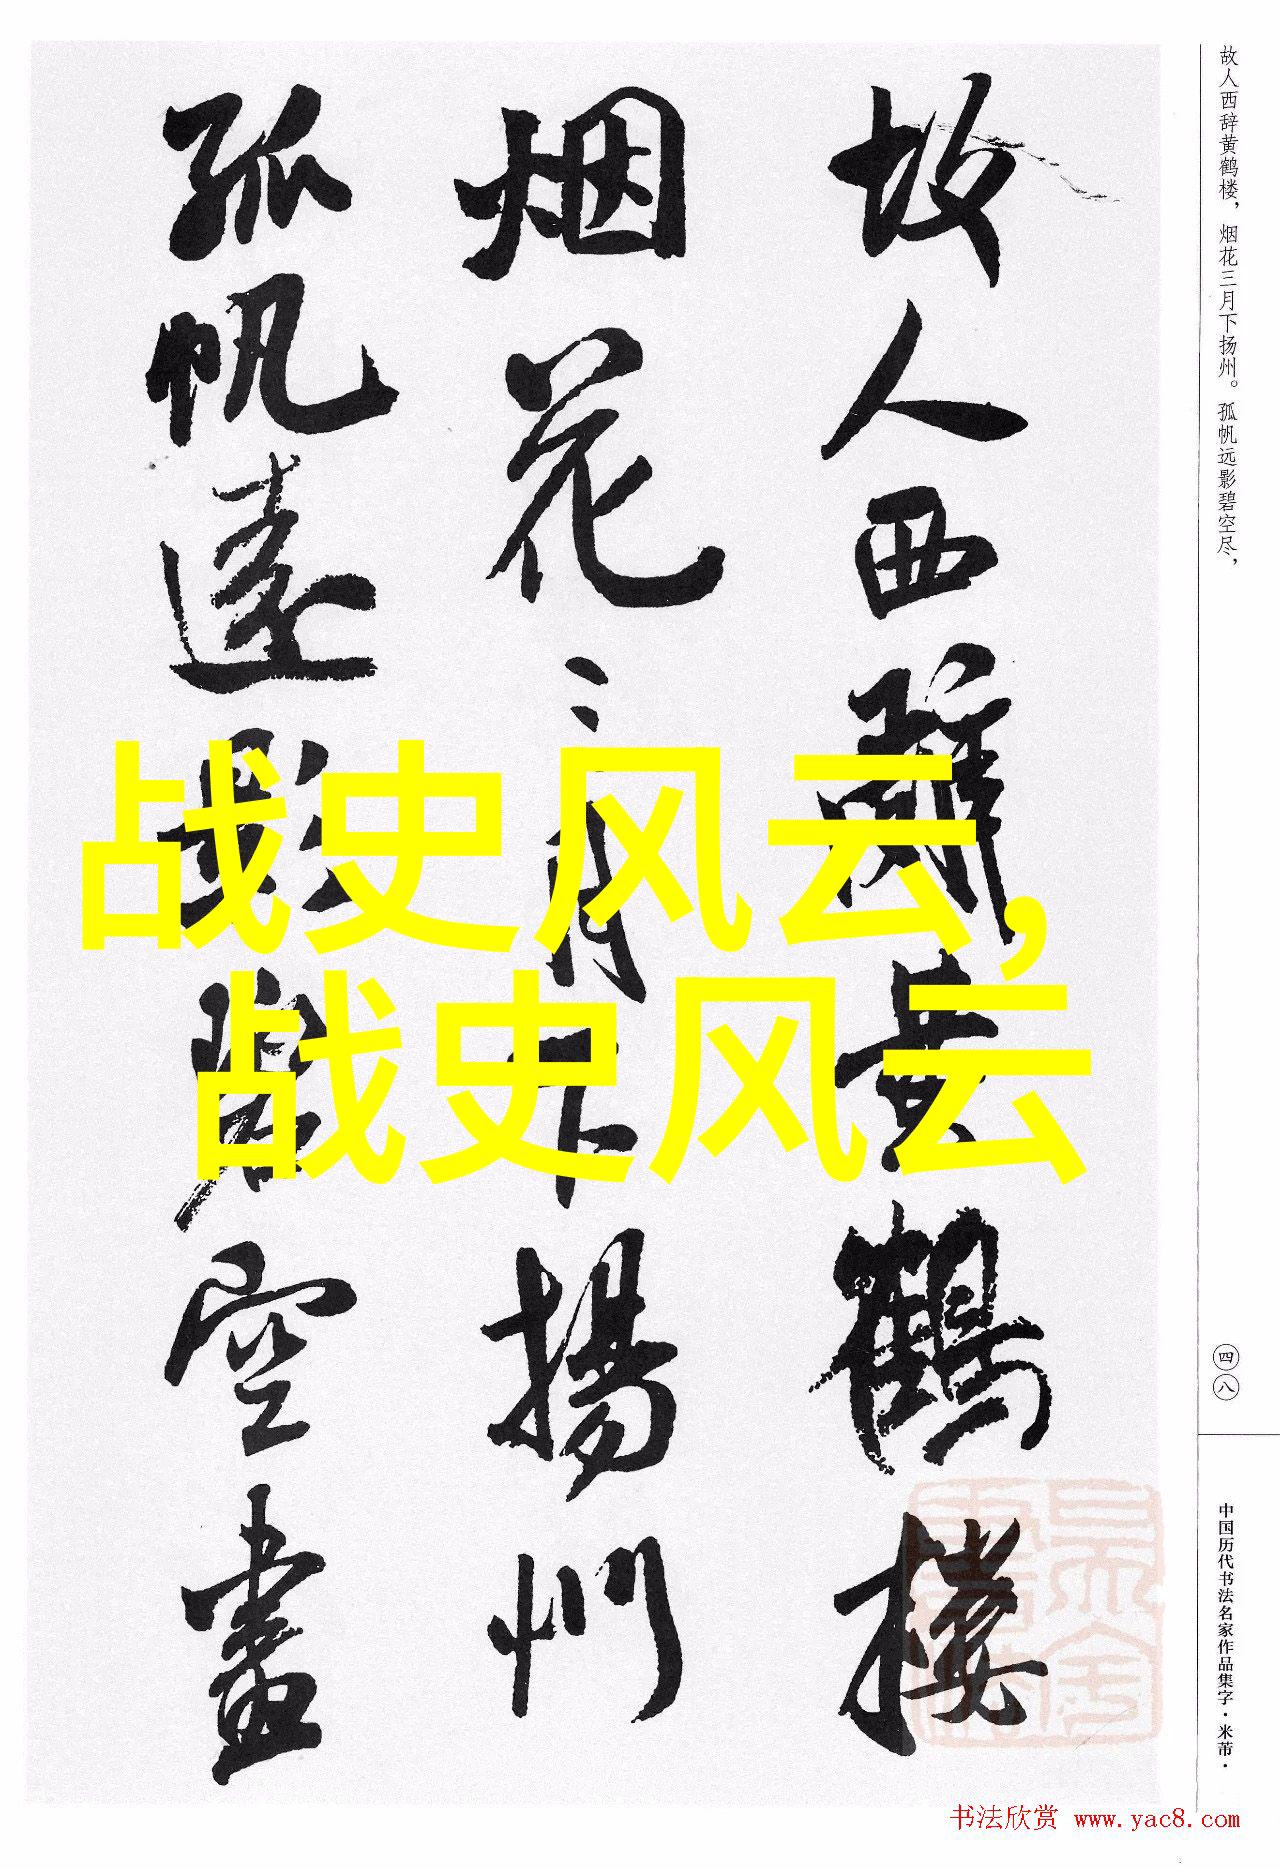 故人西辞黄鹤楼，烟花三月下扬州。孤帆远影碧空尽，
故人西辭黄鶴樓
烟花三月下揚州
孤帆遠影碧空盡
战史风云，
战史风云
四八
中国历代书法名家作品集字·米芾·
书法欣赏 www.yac8.com